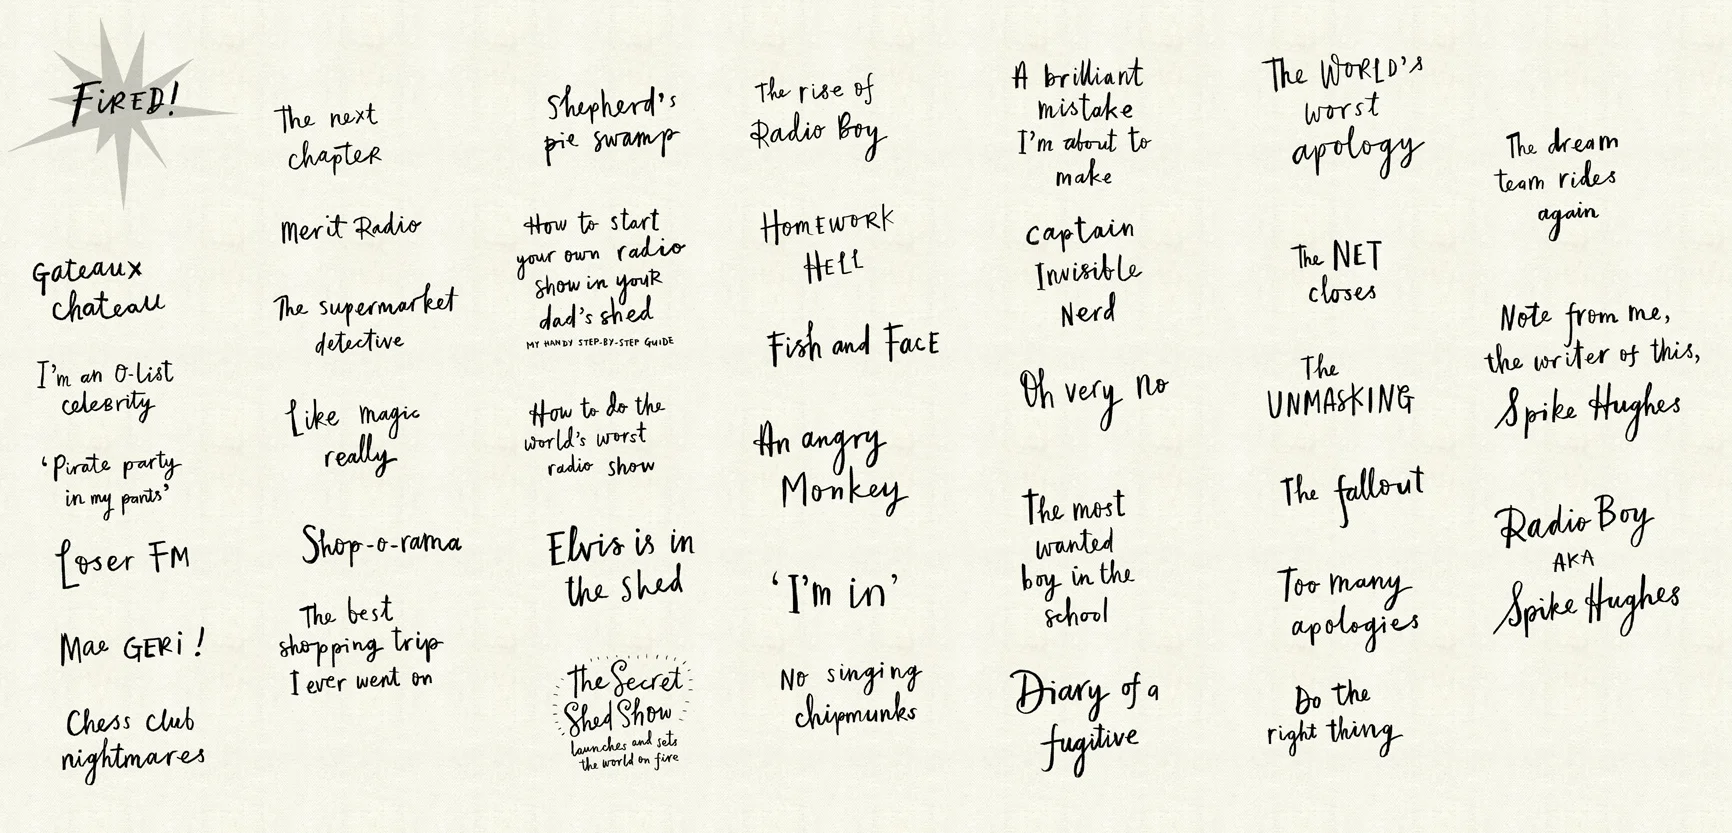 FiRED!
Gateaux
chateau
I'm an O-list
celebrity
'Pirate party
in my pants'
Loser FM
Mae GERi!
Chess club
nightmares
The next
chapter
Merit Radio
The supermarket
detective
Like magic
really
Shop-o-rama
The best
shopping trip
I ever went on
Shepherd's
pie swamp
How to start
your own radio
show in your
dad's shed
MY HANDY STEP-BY-STEP GUIDE
How to do the
world's worst
radio show
Elvis is in
the shed
The Secret
Shed Show
launches and sets
the world on fire
The rise of
Radio Boy
HOMEWORK
HELL
Fish and Face
An angry
Monkey
'I'm in'
No singing
chipmunks
A brilliant
mistake
I'm about to
make
Captain
Invisible
Nerd
Oh very no
The most
wanted
boy in the
school
Diary of a
fugitive
The WORLD'S
worst
apology
The NET
closes
The
UNMASKING
The fallout
Too many
apologies
Do the
right thing
The dream
team rides
again
Note from me,
the writer of this,
Spike Hughes
Radio Boy
AKA
Spike Hughes